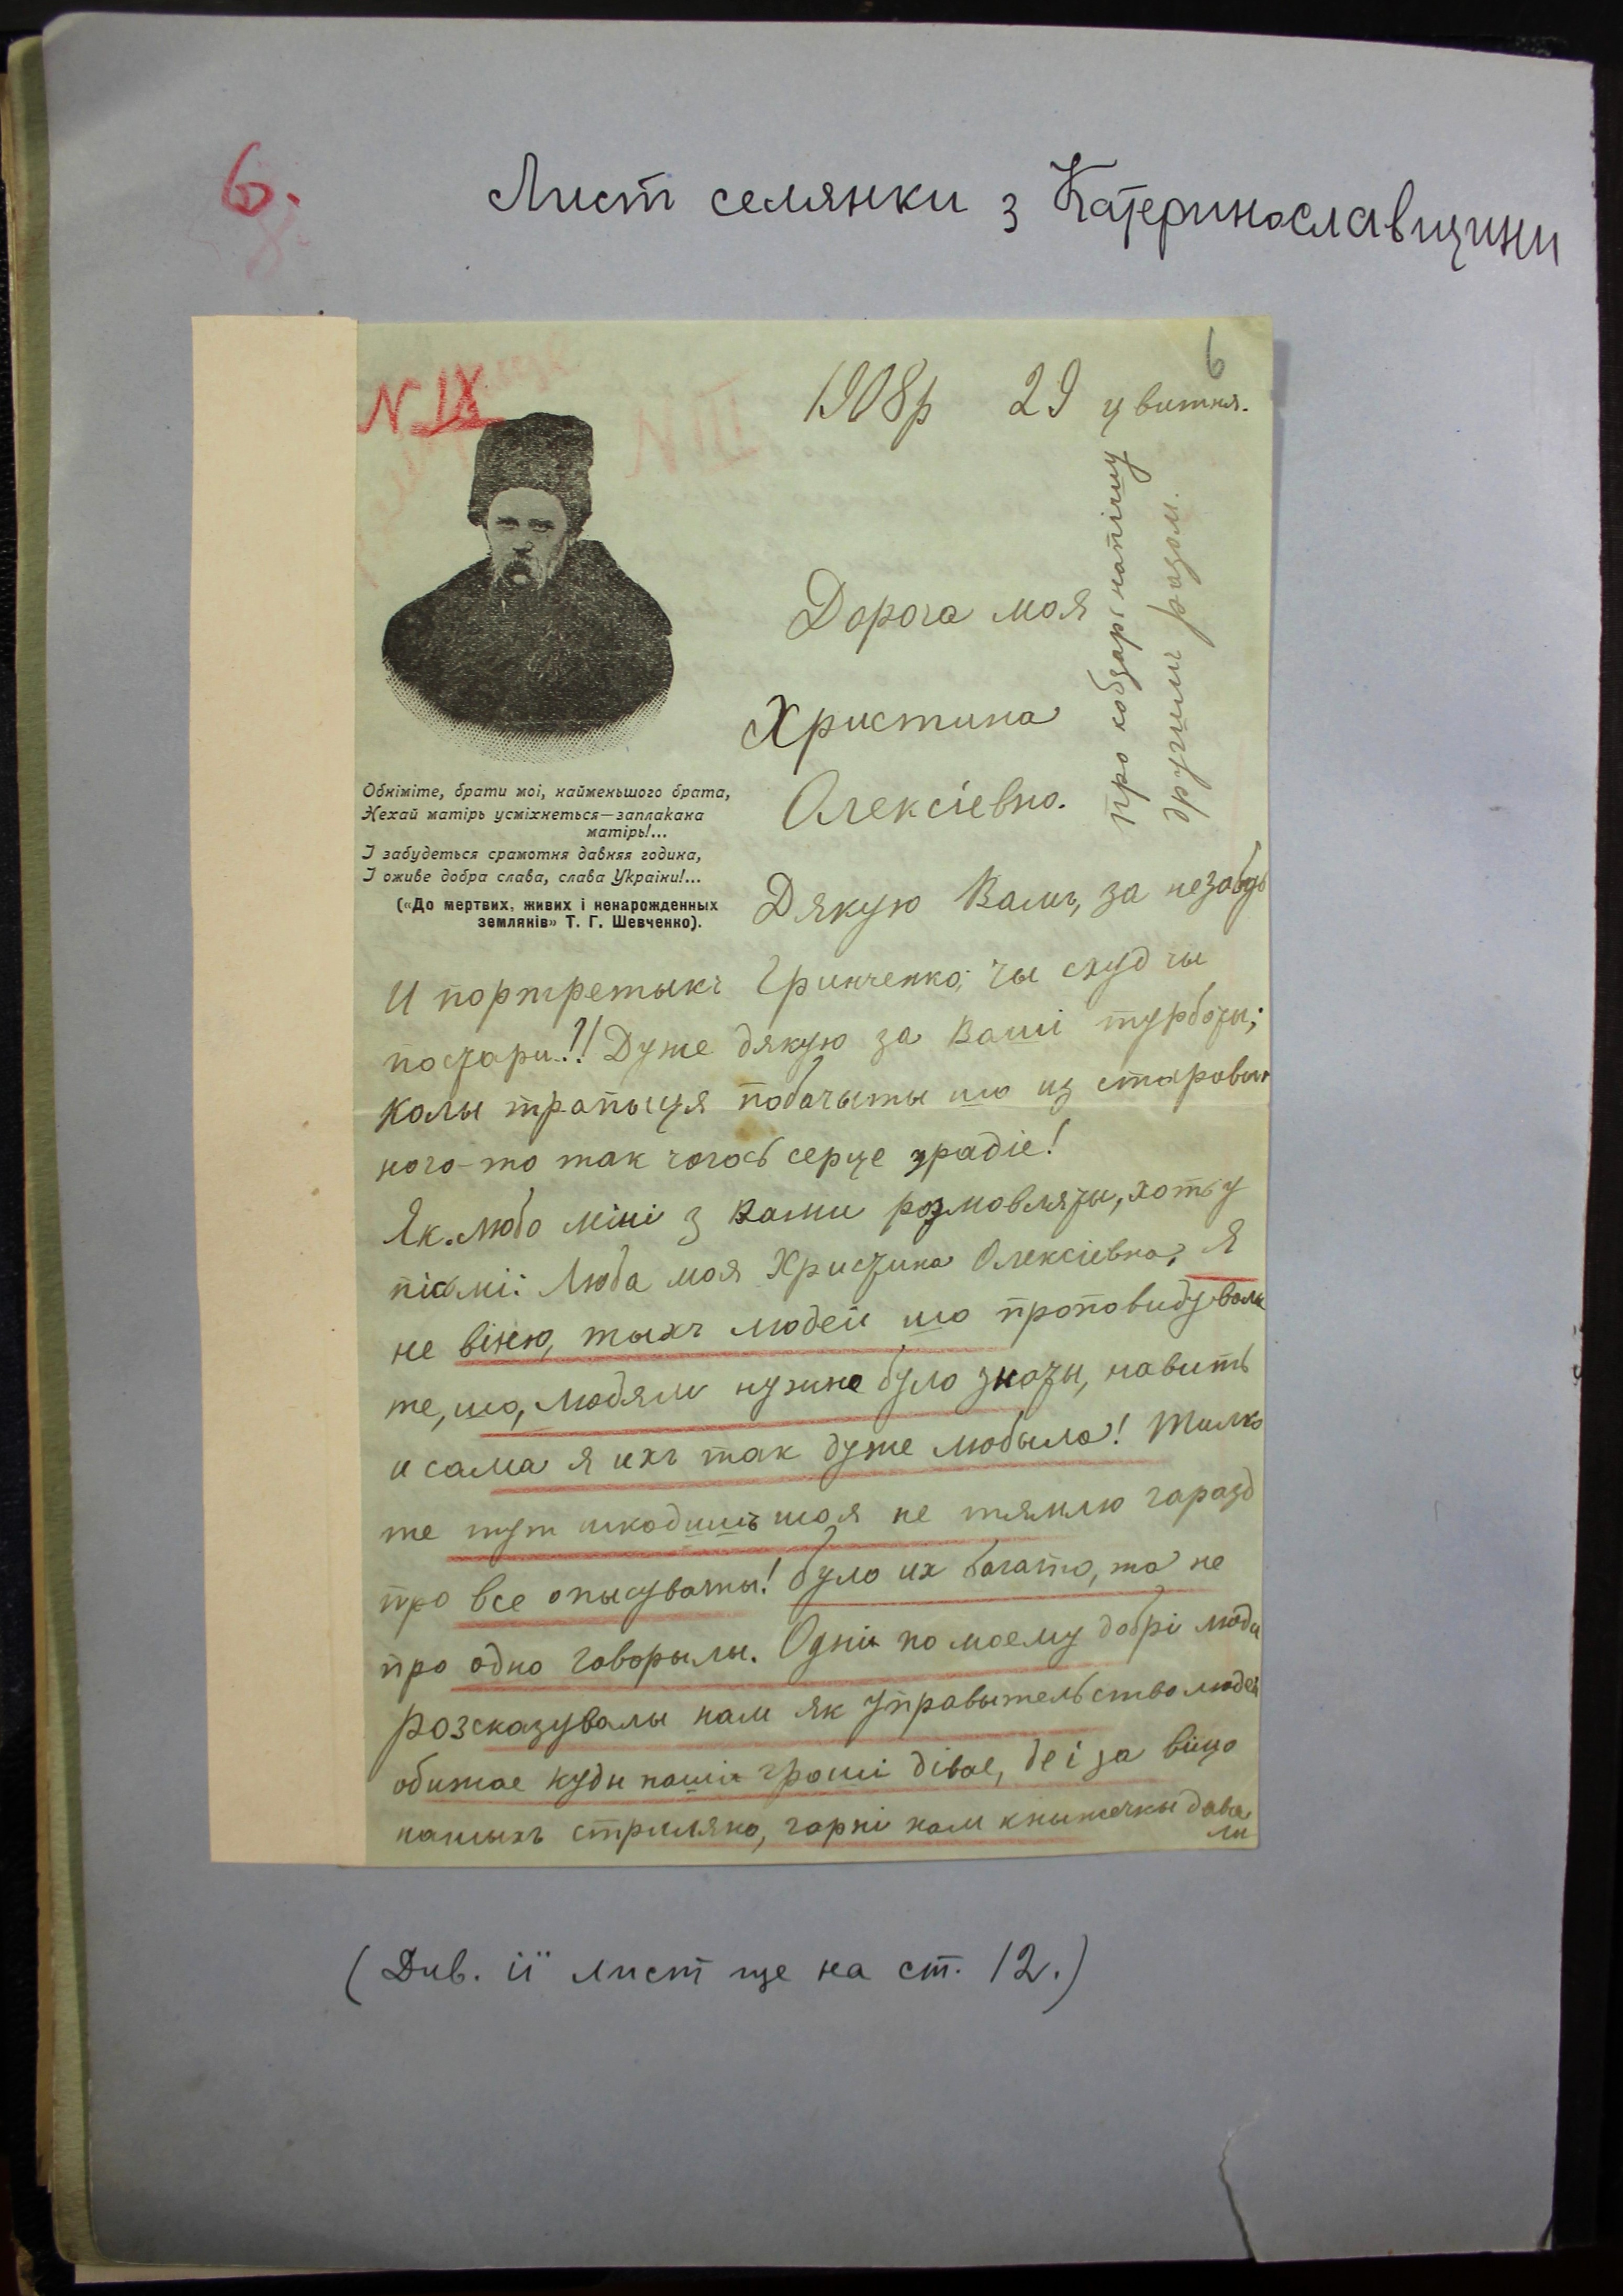 6.
Лист селянки з Катеринославщини
N IX
N III
6
1908р 29 цвитня.
про кобзарь напишу
другимъ разом.
Дорога моя
Христина
Олексіевно.
Обніміте, брати мої, найменьшого брата,
Нехай матірь усміхнеться—заплакана
матірь!...
І забудеться срамотня давняя година,
І оживе добра слава, слава України!...
(«До мертвих, живих і ненарожденных
землянів» Т. Г. Шевченко).
Дякую Вамъ, за незабудь
И портретыкъ Гринченко; чы схуд чы
постари!! Дуже дякую за Ваші турботы;
Колы трапыця побачыты шо из старовын
ного-то так чогось серце зрадіе!
Як любо міні з Вами розмовляты, хоть у
пісмі: Люба моя Христина Олексіевна, Я
не вінею, тыхъ людей шо проповидувалы
те, шо, людям нужно було знаты, навить
и сама я ихъ так дуже любыла! Тилко
те тут шкодишь шо я не тямлю гаразд
про все опысуваты! було их багато, та не
про одно говорылы. Одни по моему добрі люди
розсказувалы нам як управытельство людей
обижае куды наши гроши дівае, де і за віщо
нашыхъ стриляно, гарні нам кныжечкы дава
лы
(Див. її лист ще на ст. 12.)